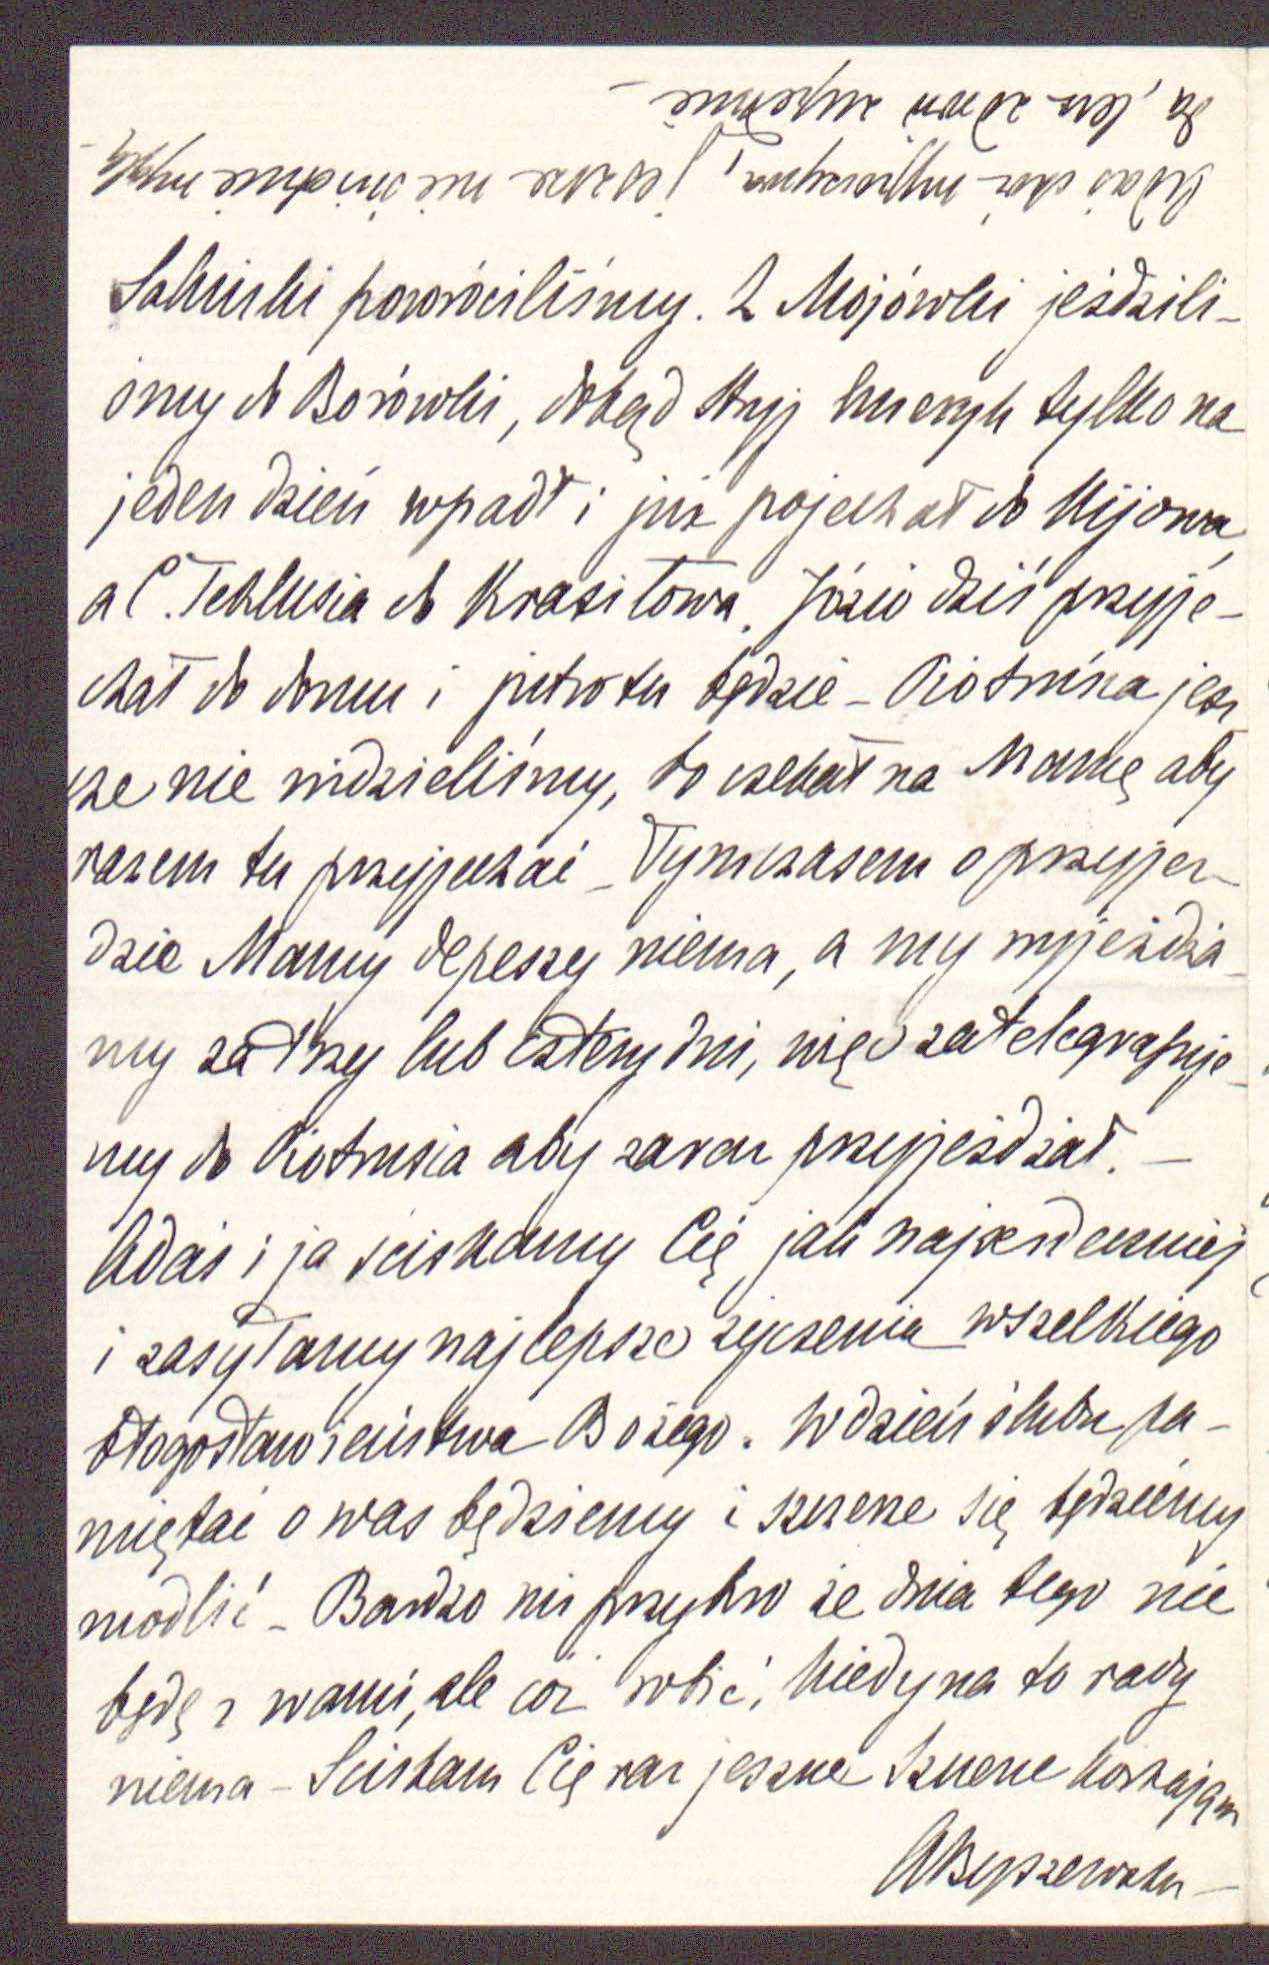 Salinki powróciliśmy. Z Mojówki jeździli-
śmy do Borówki, dokąd Stryj Henryk tylko na
jeden dzień wpadł i już pojechał do Kijowa,
a C. Teklusia do Krasiłowa. Józio dziś przyje-
chał do domu i jutro tu będzie – Piotrusia jesz
cze nie widzieliśmy, bo czekał na Mamę aby
razem tu przyjechać – Tymczasem o przyjeź-
dzie Mamy depeszy niema, a my wyjeżdża-
my za trzy lub cztery dni, więc zatelegrafuje-
my do Piotrusia aby zaraz przyjeżdżał. –
Adaś i ja ściskamy Cię jak najserdeczniej
i zasyłamy najlepsze życzenia wszelkiego
błogosławieństwa Bożego. W dzień ślubu pa-
miętać o was będziemy i szczerze się będziemy
modlić – Bardzo mi przykro że dnia tego nie
będę z wami, ale cóż robić, kiedy na to rady
niema – Ściskam Cię raz jeszcze szczerze kochająca
Adaś jest
ża, lecz zdrów zupełnie –